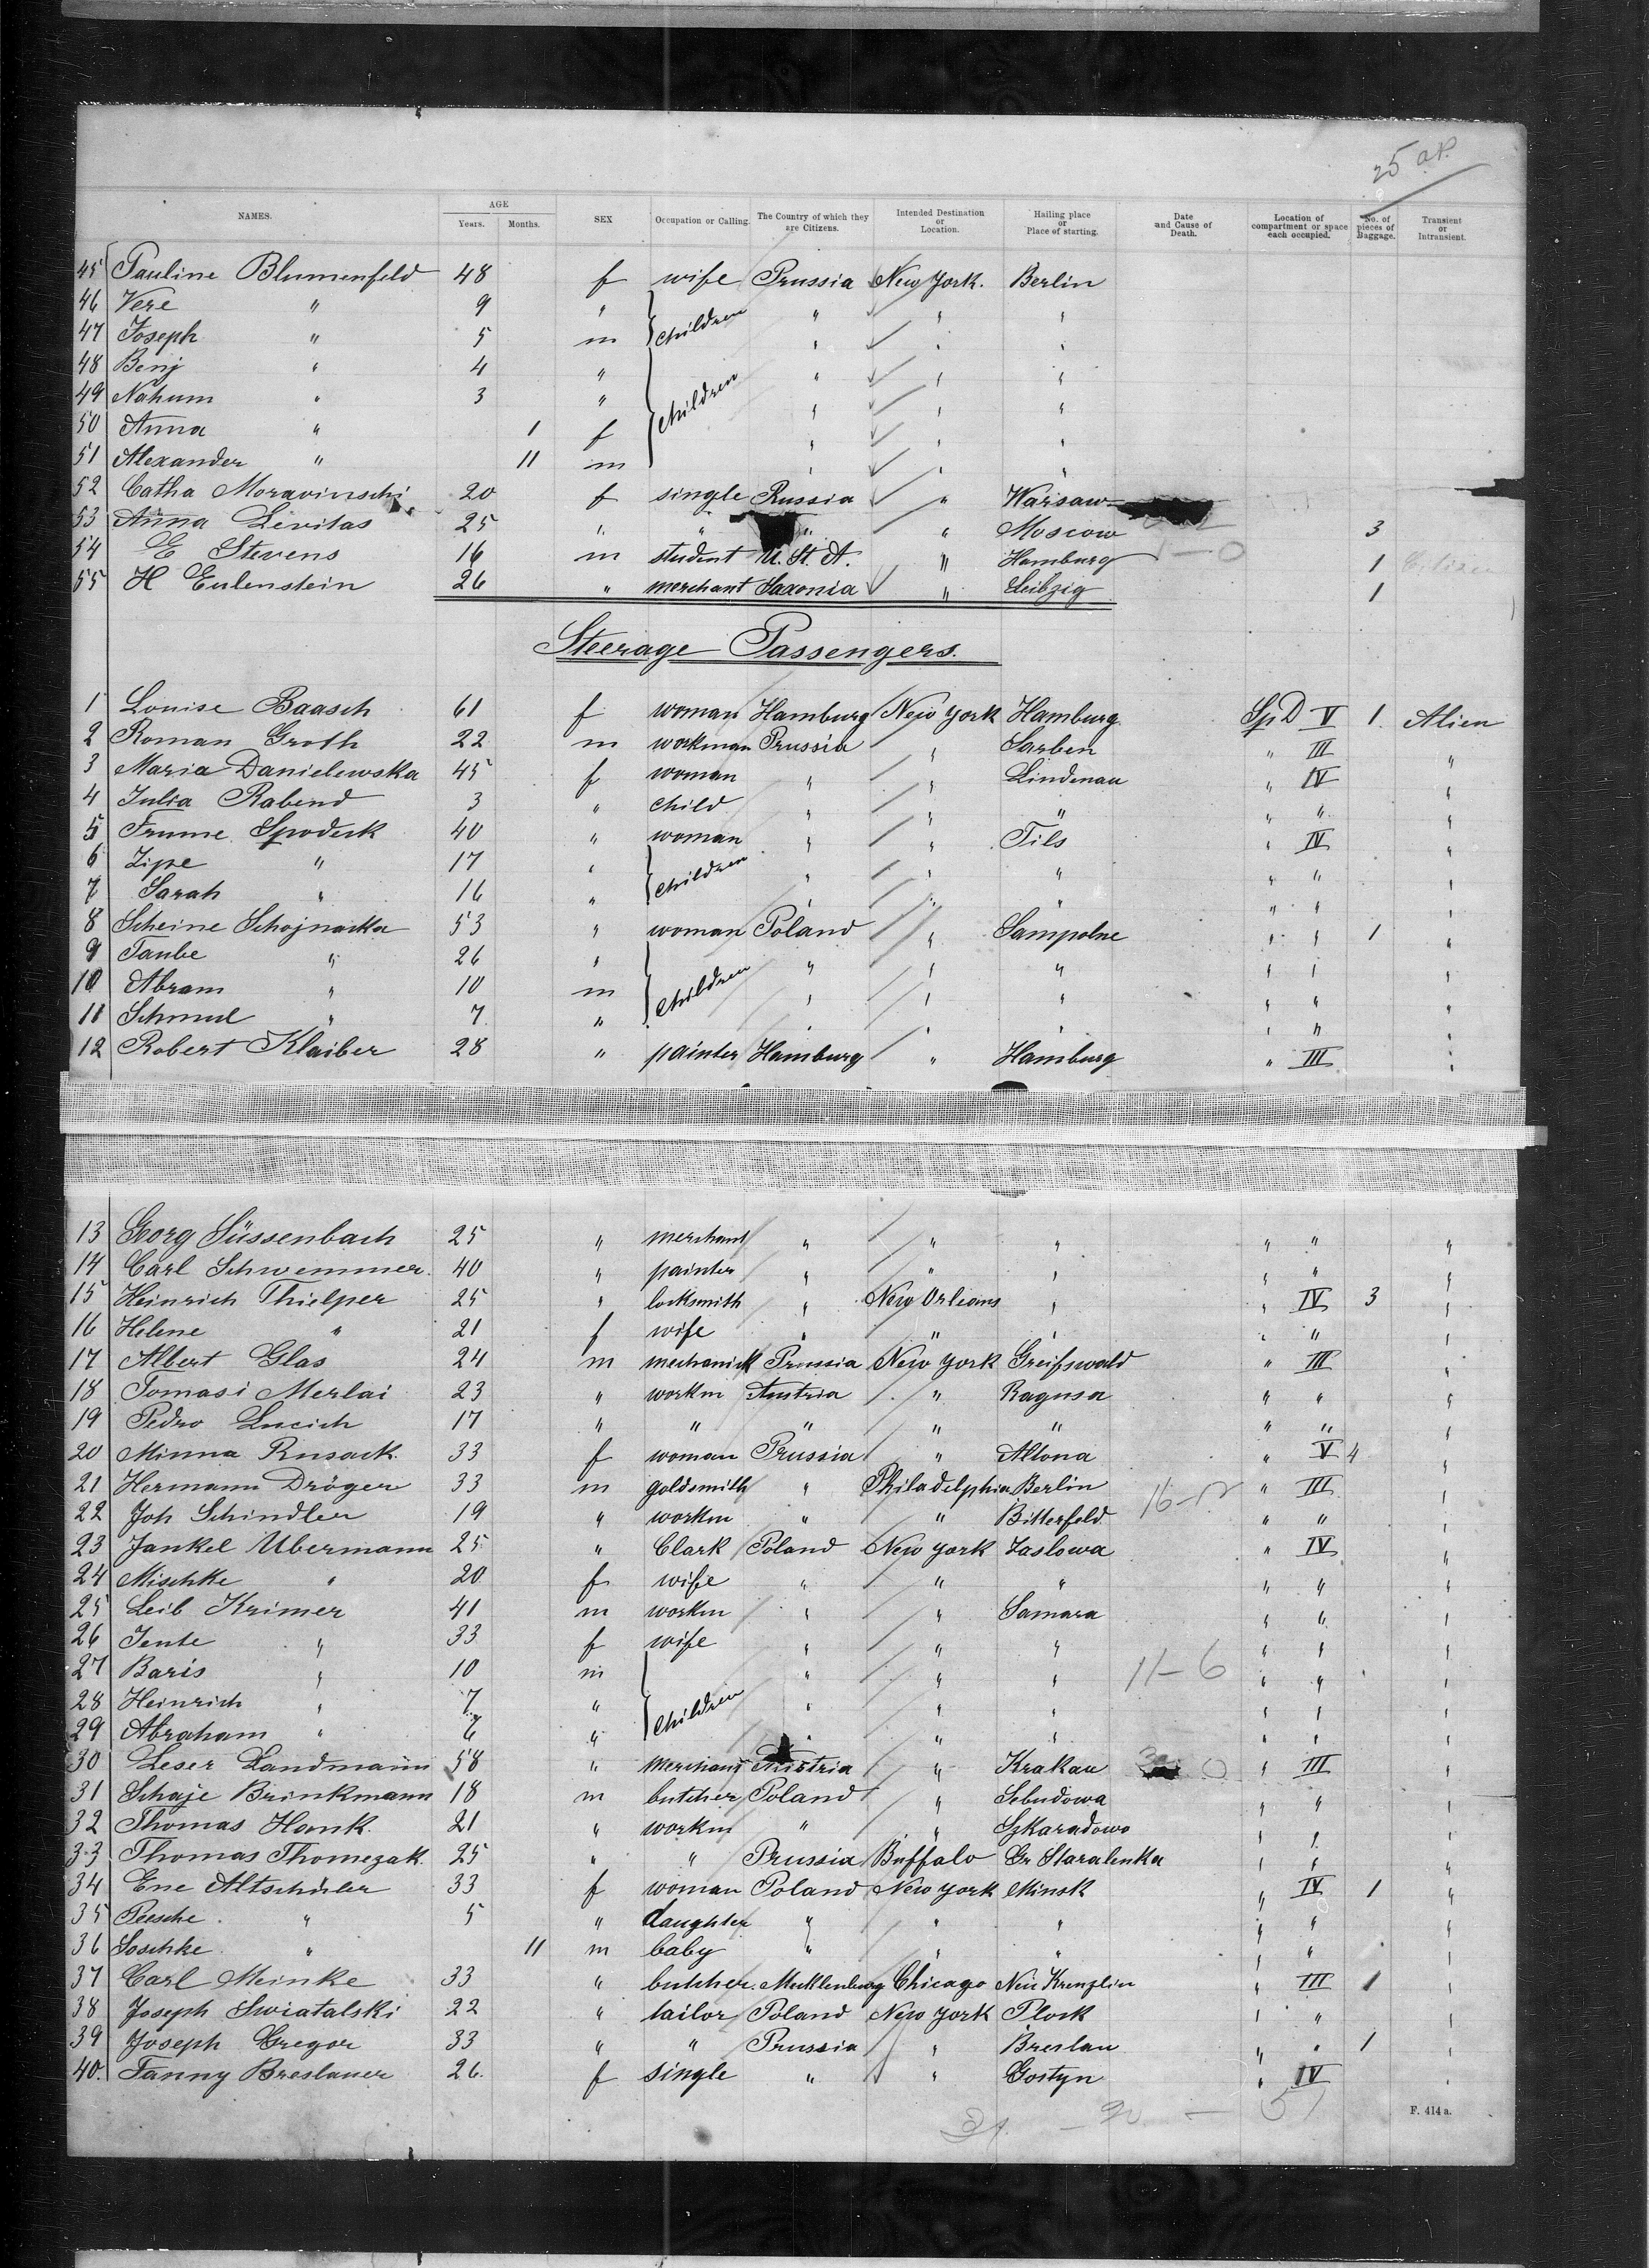 25 a.P.
NAMES. AGE Years. Months. SEX Occupation or Calling. The Country of which they are Citizens. Intended Destination or Location. Hailing place or Place of starting. Date and Cause of Death. Location of compartment or space each occupied. No. of pieces of Baggage. Transient or Intransient.
45 Pauline Blumenfeld 48 f wife Prussia New York. Berlin
46 Vere " 9 " children " " "
47 Joseph " 5 m " " "
48 Benj " 4 " children " " "
49 Nahum " 3 " " " "
50 Anna " 1 f " " "
51 Alexander " 11 m " " "
52 Catha Moravinschi 20 f single Russia " Warsaw
53 Anna Levitas 25 " " " " Moscow 3
54 E Stevens 16 m student U. St. A. " Hamburg 1 Citizen
55 H Eulenstein 26 " merchant Saxonia " Leibzig 1
Steerage Passengers.
1 Louise Baasch 61 f woman Hamburg New York Hamburg Sp D V 1 Alien
2 Roman Groth 22 m workman Prussia " Sarben " III "
3 Maria Danielewska 45 f woman " " Lindenau " IV "
4 Julia Rabend 3 " child " " " " " "
5 Frume Spodek 40 " woman " " Tils " IV "
6 Zipe " 17 " children " " " " " "
7 Sarah " 16 " " " " " " "
8 Scheine Schojnacka 53 " woman Poland " Sampolne " " 1 "
9 Taube " 26 " children " " " " " "
10 Abram " 10 m " " " " " "
11 Schmul " 7 " " " " " " "
12 Robert Klaiber 28 " painter Hamburg " Hamburg " III "
13 Georg Süssenbach 25 " merchant " " " " " "
14 Carl Schwemmer. 40 " painter " " " " " "
15 Heinrich Thielper 25 " locksmith " New Orleans " " IV 3 "
16 Helene " 21 f wife " " " " " "
17 Albert Glas 24 m mechanick Prussia New York Greifswald " III "
18 Tomasi Merlai 23 " workm Austria " Ragusa " " "
19 Pedro Lucich 17 " " " " " " " "
20 Minna Rusack. 33 f woman Prussia " Altona " V 4 "
21 Hermann Dröger 33 m goldsmith " Philadelphia Berlin " III "
22 Joh Schindler 19 " workm " " Bitterfeld " " "
23 Jankel Ubermann 25 " Clark Poland New York Zaslowa " IV "
24 Mischke " 20 f wife " " " " " "
25 Leib Krimer 41 m workm " " Samara " " "
26 Jente " 33 f wife " " " " " "
27 Baris " 10 m children " " " 11-6 " " "
28 Heinrich " 7 " " " " " " "
29 Abraham " 6 " " " " " " "
30 Leser Landmann 58 " merchant Austria " Krakau " III "
31 Schaje Brinkmann 18 m butcher Poland " Sebudowa " " "
32 Thomas Honk. 21 " workm " " Szkaradowo " " "
33 Thomas Thomezak. 25 " " Prussia Buffalo Gr Staralenka " " "
34 Ene Altschuler 33 f woman Poland New York Minsk " IV 1 "
35 Peesche " 5 " daughter " " " " " "
36 Soschke " 11 m baby " " " " " "
37 Carl Meinke 33 " butcher. Mecklenburg Chicago Neu Krenzlin " III 1 "
38 Joseph Swiatalski 22 " tailor Poland New York Plock " " "
39 Joseph Gregor 33 " " Prussia " Breslau " " 1 "
40. Fanny Breslauer 26. f single " " Gostyn " IV "
F. 414 a.